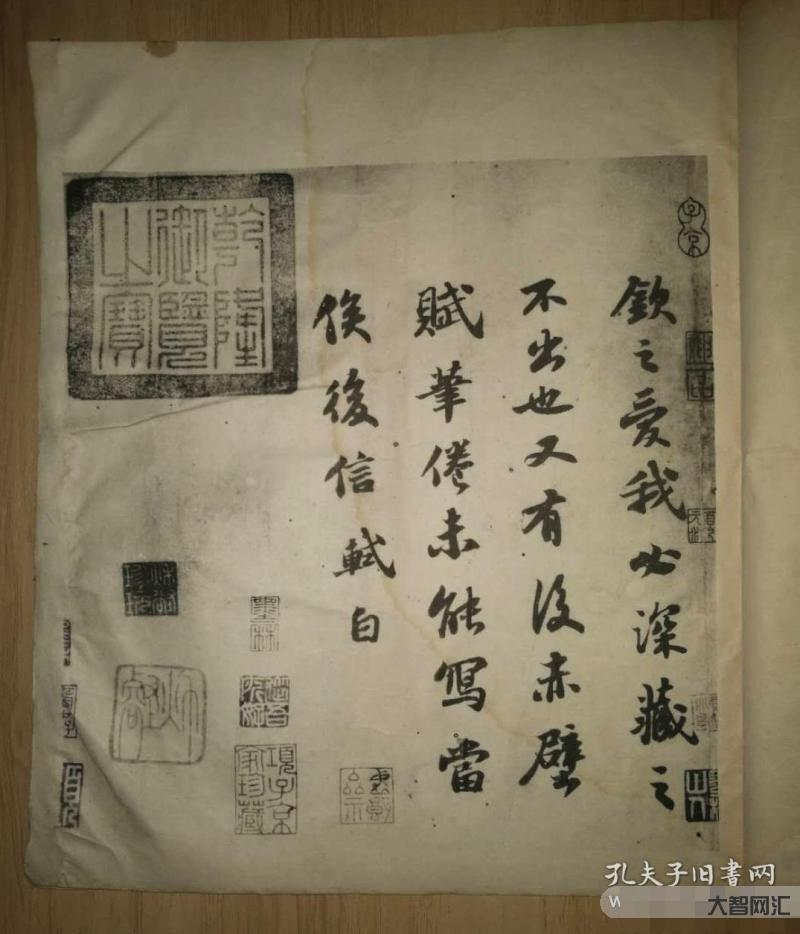 欽之愛我必深藏之
不出也又有後赤壁
賦筆倦未能寫當
俟後信軾白
乾隆
御覽
之寶
子京
項子京
家珍藏
孔夫子旧书网
W
大智网汇